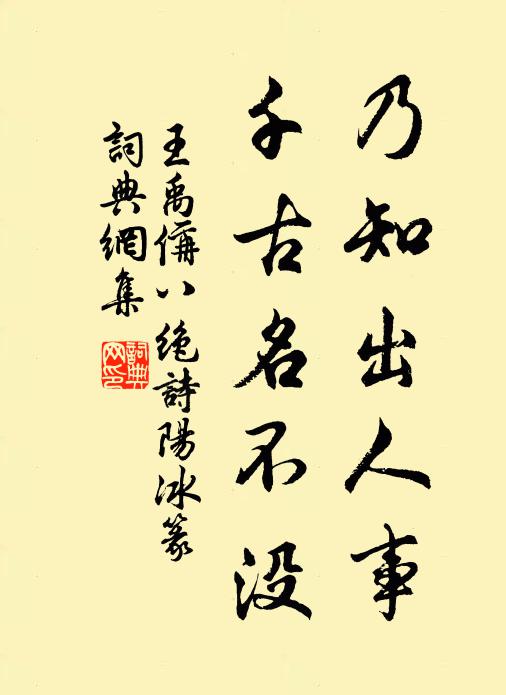 乃知出人事
千古名不没
王禹偁八绝詩陽冰篆
詞典網集
詞典
网印